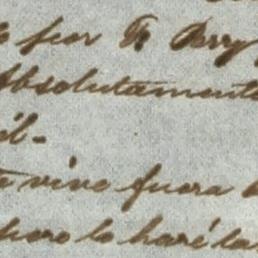 por Fr Perry
Absolutamente
él-
vive fuera
pero lo haré la